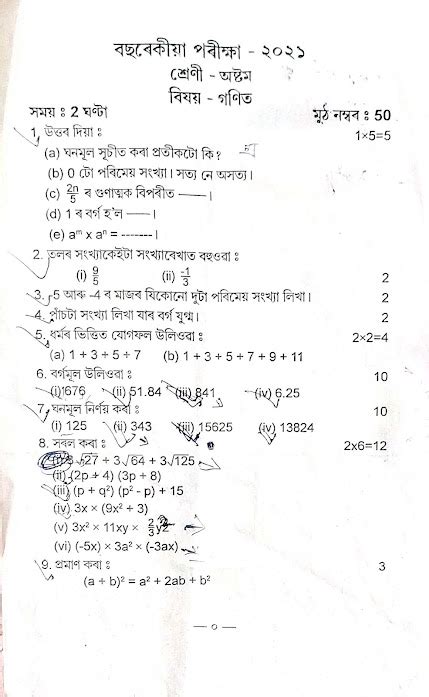 বছৰেকীয়া পৰীক্ষা - ২০২১
শ্ৰেণী - অষ্টম
বিষয় - গণিত
সময় ঃ 2 ঘণ্টা মুঠ নম্বৰ ঃ 50
1. উত্তৰ দিয়া ঃ 1×5=5
(a) ঘনমূল সূচীত কৰা প্ৰতীকটো কি?
(b) 0 টো পৰিমেয় সংখ্যা। সত্য নে অসত্য।
(c) 2n/5 ৰ গুণাত্মক বিপৰীত ——।
(d) 1 ৰ বৰ্গ হ'ল ——।
(e) aᵐ x aⁿ = -------।
2. তলৰ সংখ্যাকেইটা সংখ্যাৰেখাত বহুওৱা ঃ
(i) 9/5 (ii) -1/3 2
3. -5 আৰু -4 ৰ মাজৰ যিকোনো দুটা পৰিমেয় সংখ্যা লিখা। 2
4. পাঁচটা সংখ্যা লিখা যাৰ বৰ্গ যুগ্ম। 2
5. ধৰ্মৰ ভিত্তিত যোগফল উলিওৱা ঃ 2×2=4
(a) 1 + 3 + 5 + 7 (b) 1 + 3 + 5 + 7 + 9 + 11
6. বৰ্গমূল উলিওৱা ঃ 10
(i) 1676 (ii) 51.84 (iii) 841 (iv) 6.25
7. ঘনমূল নিৰ্ণয় কৰা ঃ 10
(i) 125 (ii) 343 (iii) 15625 (iv) 13824
8. সৰল কৰা ঃ 2x6=12
√27 + 3√64 + 3√125
(ii) (2p + 4) (3p + 8)
(iii) (p + q²) (p² - p) + 15
(iv) 3x × (9x² + 3)
(v) 3x² × 11xy × 2/3
(vi) (-5x) × 3a² × (-3ax)
9. প্ৰমাণ কৰা ঃ 3
(a + b)² = a² + 2ab + b²
— o —